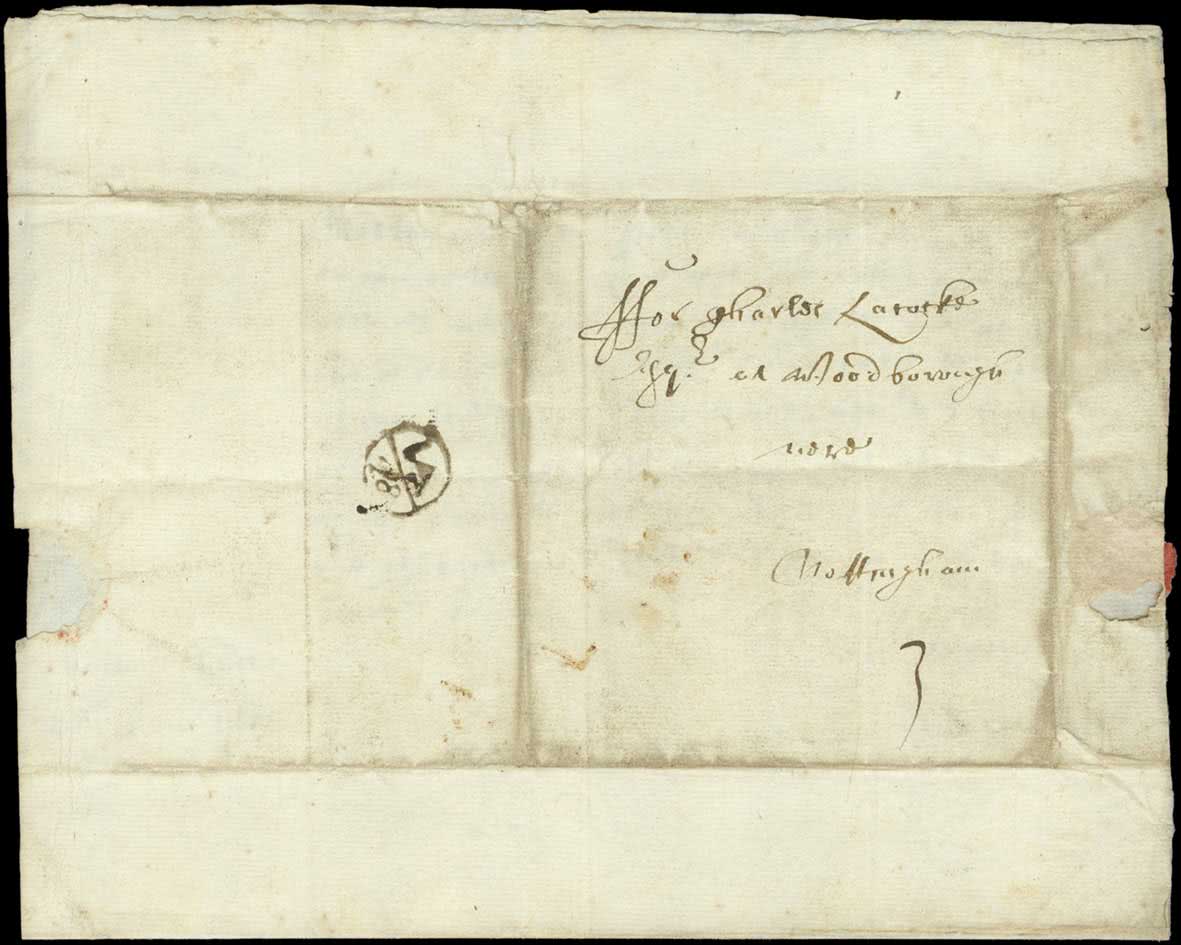 ffor Charles Lacocke
Esqr. at Woodborough
nere
Nottingham
3
28